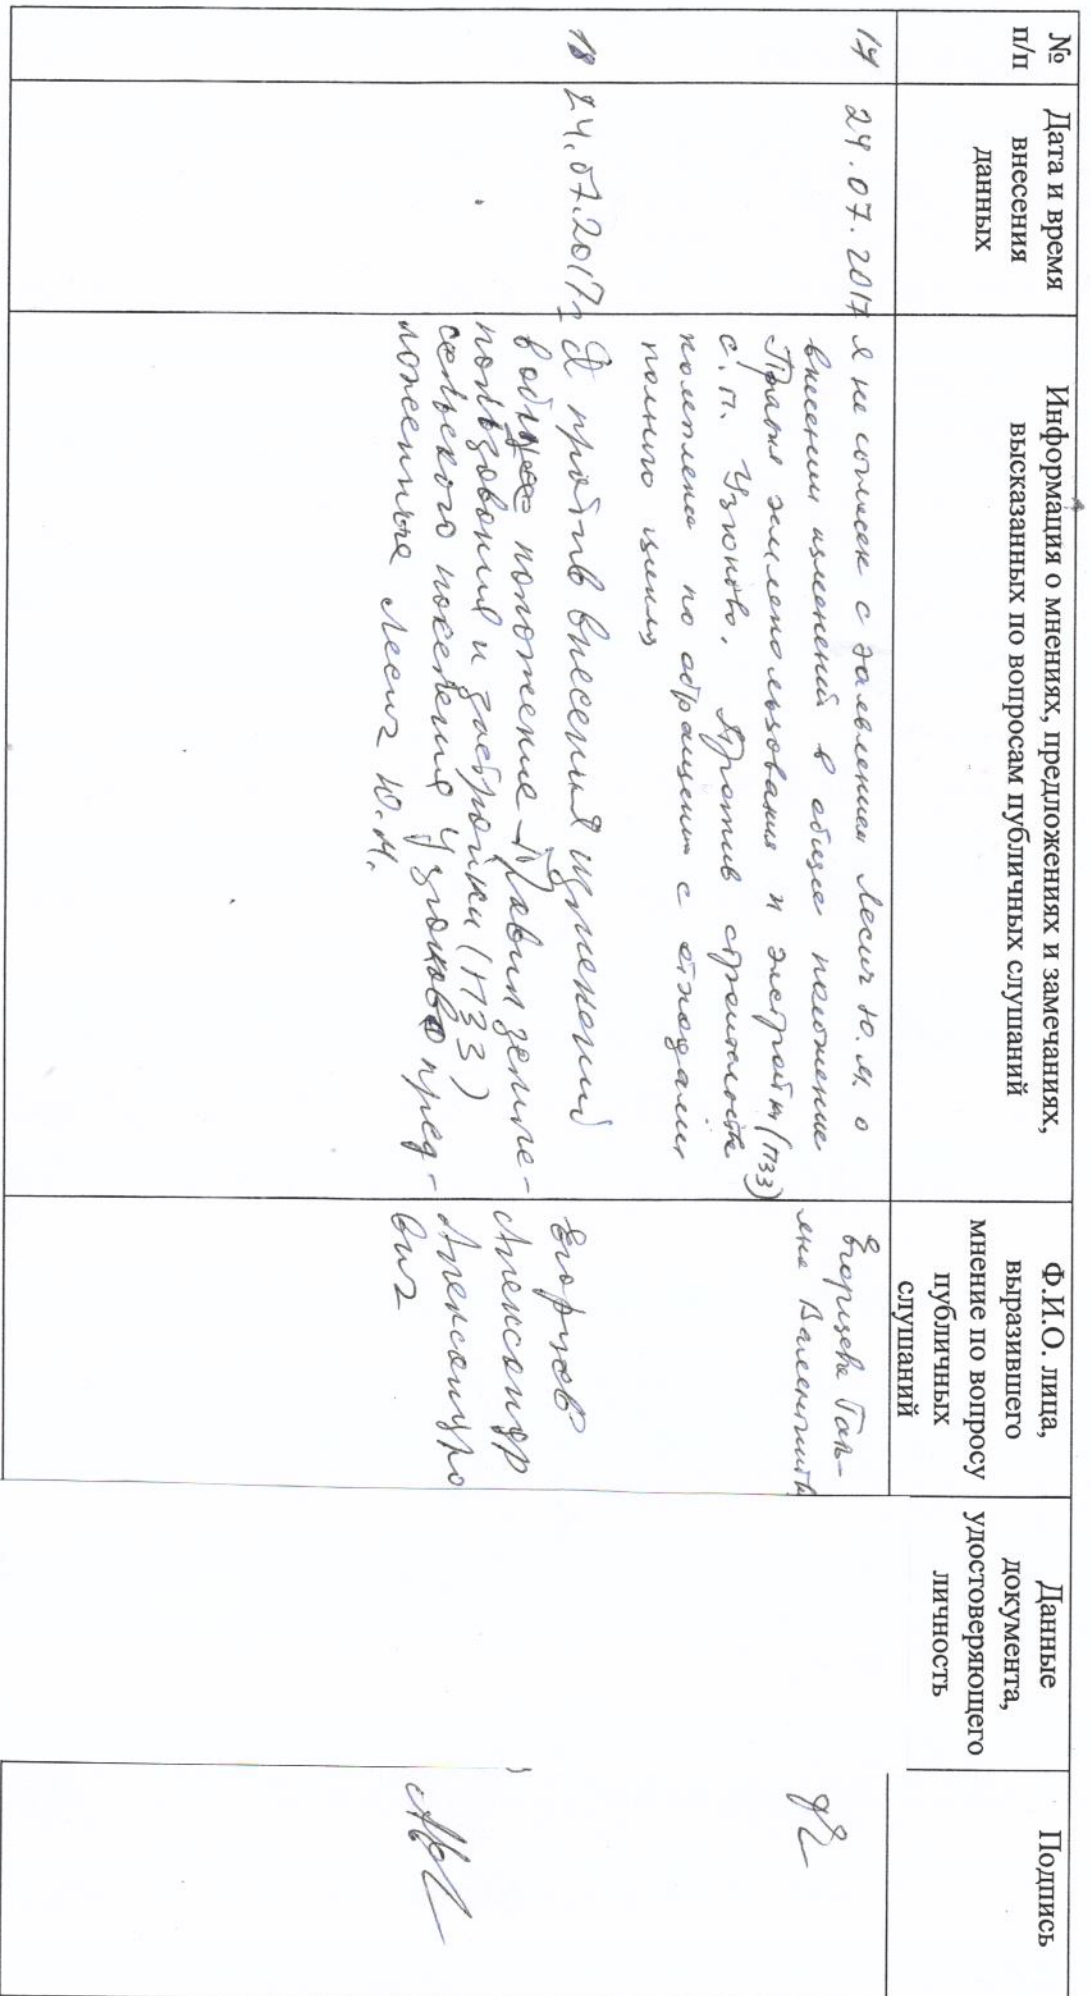 №
п/п
Дата и время
внесения
данных
Информация о мнениях, предложениях и замечаниях,
высказанных по вопросам публичных слушаний
Ф.И.О. лица,
выразившего
мнение по вопросу
публичных
слушаний
Данные
документа,
удостоверяющего
личность
Подпись
17
24.07.2017
я не согласен с заявлением Лесич Ю.М. о
внесении изменений в общее положение
Правил землепользования и застройки (ПЗЗ)
с.п. Узюково. Против строительства
комплекса по обращению с отходами
полного цикла
18
24.07.2017г
Я против внесения изменений
в общее положение Правил земле-
пользования и застройки (ПЗЗ)
сельского поселения Узюково пред-
ложенные Лесич Ю.М.
Егорцев
Александр
Александро
вич